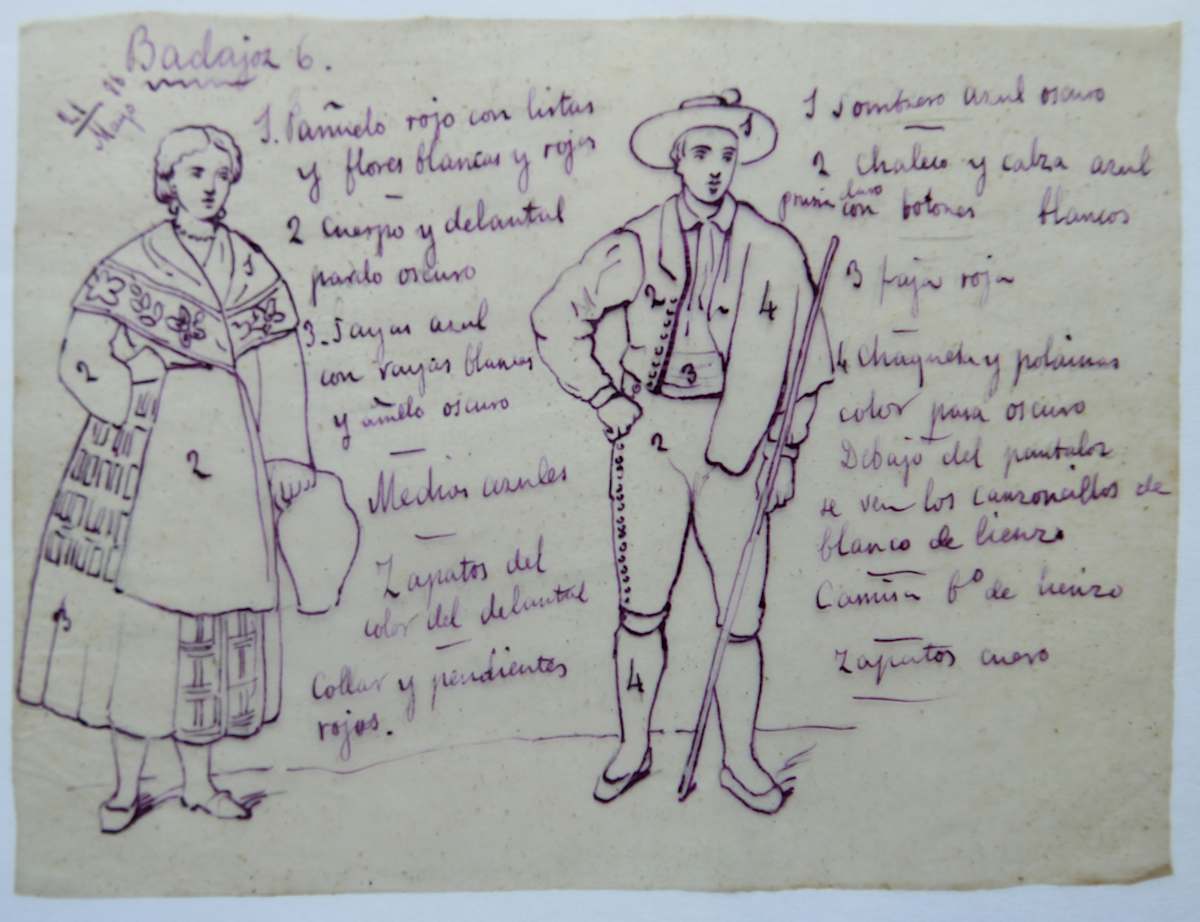 Badajoz 6.
21 Mayo
1. Pañuelo rojo con listas
y flores blancas y rojas
2 Cuerpo y delantal
pardo oscuro
3_ Sayas azul
con rayas blancas
y oscuro
Medias azules
Zapatos del
color del delantal
Collar y pendientes
rojos.
1
2
2
3
1 Sombrero azul oscuro
2 Chaleco y calza azul
con botones blancos
3 faja roja
4 Chaqueta y polainas
color oscuro
Debajo del pantalon
se ven los canzoncillos de
blanco de lienzo
Camisa bº de lienzo
Zapatos cuero
1
2
4
3
2
4